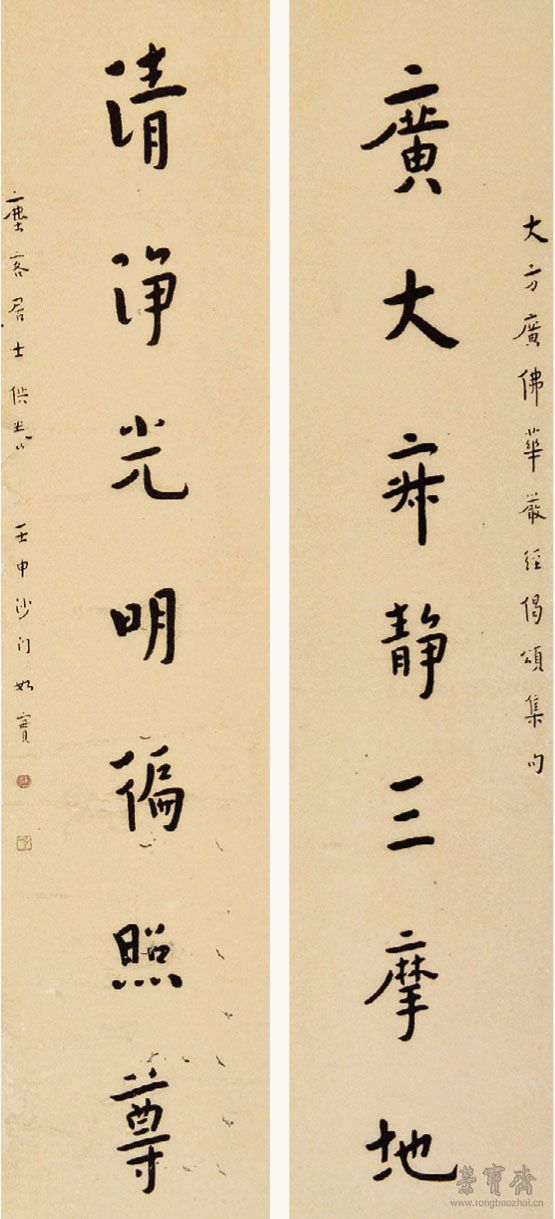 大方廣佛華嚴經偈頌集句
廣大寂靜三摩地
清淨光明徧照尊
塵客居士供養 壬申沙门如實
榮寶齋
www.rongbaozhai.cn